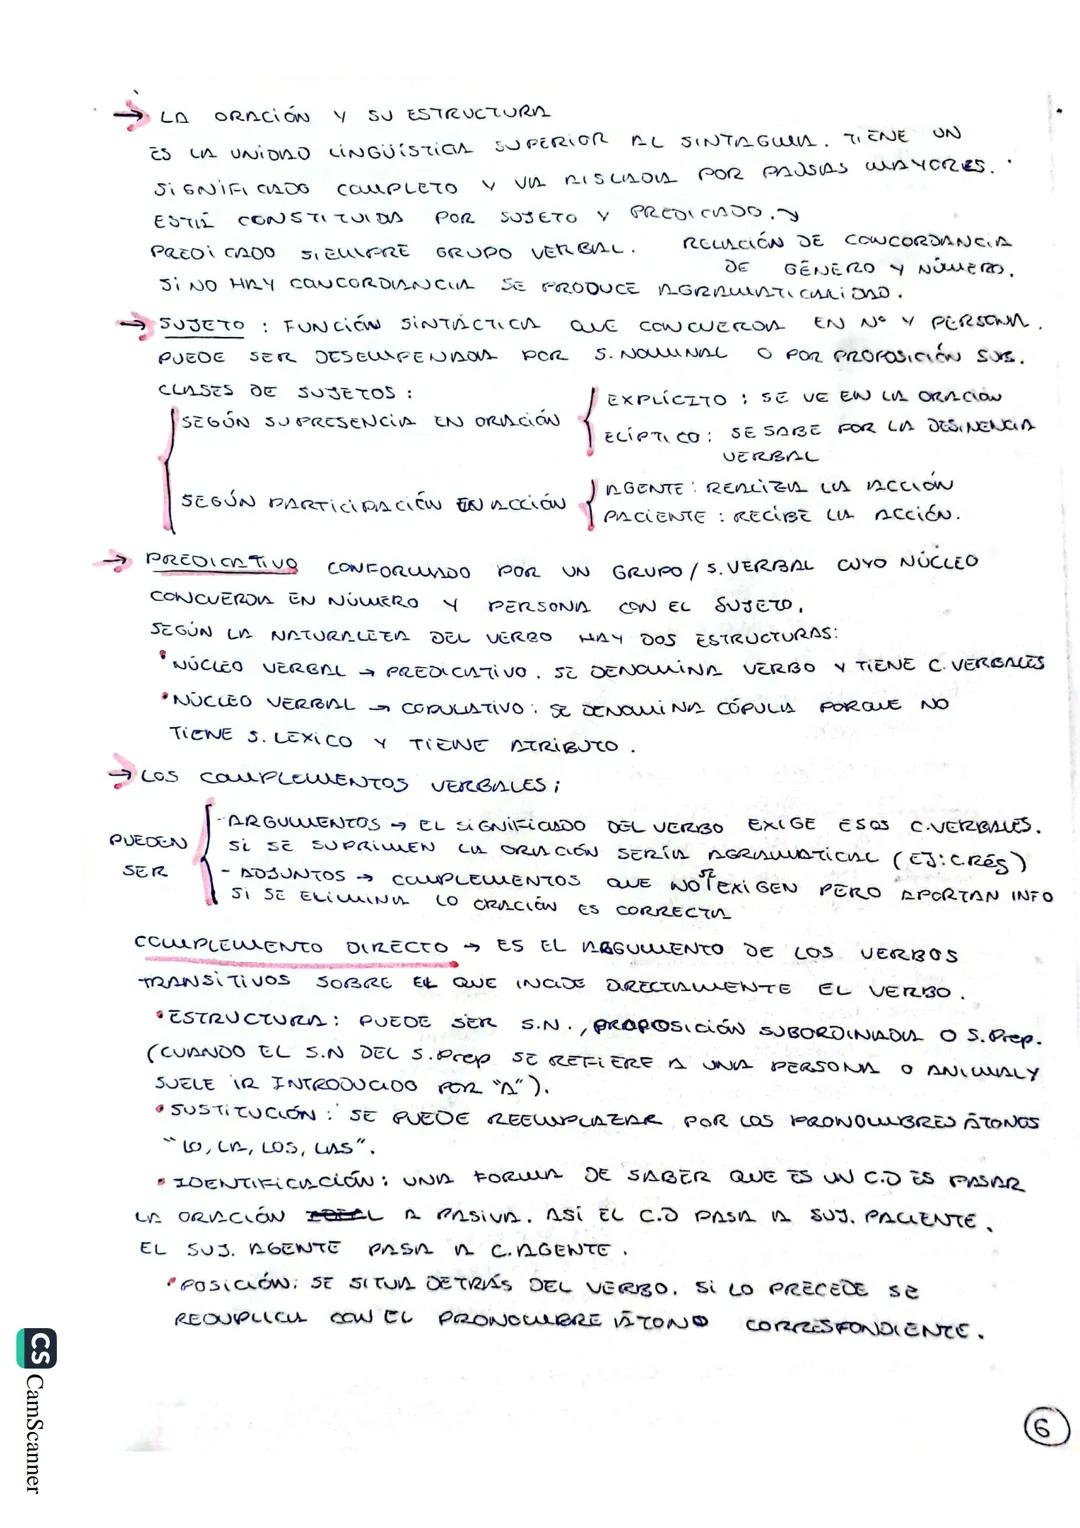 → LA ORACIÓN Y SU ESTRUCTURA
ES LA UNIDAD LINGÜÍSTICA SUPERIOR AL SINTAGMA. TIENE UN
SIGNIFICADO COMPLETO Y VA AISLADA POR PAUSAS MAYORES.
ESTÁ CONSTITUIDA POR SUJETO Y PREDICADO. ↘
PREDICADO SIEMPRE GRUPO VERBAL. RELACIÓN DE CONCORDANCIA
DE GÉNERO Y NÚMERO.
SI NO HAY CONCORDANCIA SE PRODUCE AGRAMATICALIDAD.
→ SUJETO : FUNCIÓN SINTÁCTICA QUE CONCUERDA EN Nº Y PERSONA.
PUEDE SER DESEMPEÑADA POR S. NOMINAL O POR PROPOSICIÓN SUB.
CLASES DE SUJETOS :
EXPLÍCITO : SE VE EN LA ORACIÓN
SEGÚN SU PRESENCIA EN ORACIÓN
ELÍPTICO : SE SABE POR LA DESINENCIA
VERBAL
AGENTE : REALIZA LA ACCIÓN
SEGÚN PARTICIPACIÓN EN ACCIÓN
PACIENTE : RECIBE LA ACCIÓN.
→ PREDICATIVO CONFORMADO POR UN GRUPO / S. VERBAL CUYO NÚCLEO
CONCUERDA EN NÚMERO Y PERSONA CON EL SUJETO.
SEGÚN LA NATURALEZA DEL VERBO HAY DOS ESTRUCTURAS:
• NÚCLEO VERBAL → PREDICATIVO. SE DENOMINA VERBO Y TIENE C. VERBALES
• NÚCLEO VERBAL → COPULATIVO : SE DENOMINA CÓPULA PORQUE NO
TIENE S. LEXICO Y TIENE ATRIBUTO.
→ LOS COMPLEMENTOS VERBALES ;
PUEDEN SER
- ARGUMENTOS → EL SIGNIFICADO DEL VERBO EXIGE ESOS C. VERBALES.
SI SE SUPRIMEN LA ORACIÓN SERÍA AGRAMATICAL (EJ: C. RÉG)
- ADJUNTOS → COMPLEMENTOS QUE NO SE EXIGEN PERO APORTAN INFO
SI SE ELIMINA LO ORACIÓN ES CORRECTA
COMPLEMENTO DIRECTO → ES EL ARGUMENTO DE LOS VERBOS
TRANSITIVOS SOBRE EL QUE INCIDE DIRECTAMENTE EL VERBO.
• ESTRUCTURA : PUEDE SER S.N., PROPOSICIÓN SUBORDINADA O S. Prep.
(CUANDO EL S.N DEL S. Prep SE REFIERE A UNA PERSONA O ANIMAL Y
SUELE IR INTRODUCIDO POR "A").
• SUSTITUCIÓN : SE PUEDE REEMPLAZAR POR LOS PRONOMBRES ÁTONOS
"LO, LA, LOS, LAS".
• IDENTIFICACIÓN : UNA FORMA DE SABER QUE ES UN C.D ES PASAR
LA ORACIÓN A PASIVA. ASÍ EL C.D PASA A SUJ. PACIENTE.
EL SUJ. AGENTE PASA A C. AGENTE.
• POSICIÓN : SE SITUA DETRÁS DEL VERBO. SI LO PRECEDE SE
REDUPLICA CON EL PRONOMBRE ÁTONO CORRESPONDIENTE.
6
CS CamScanner